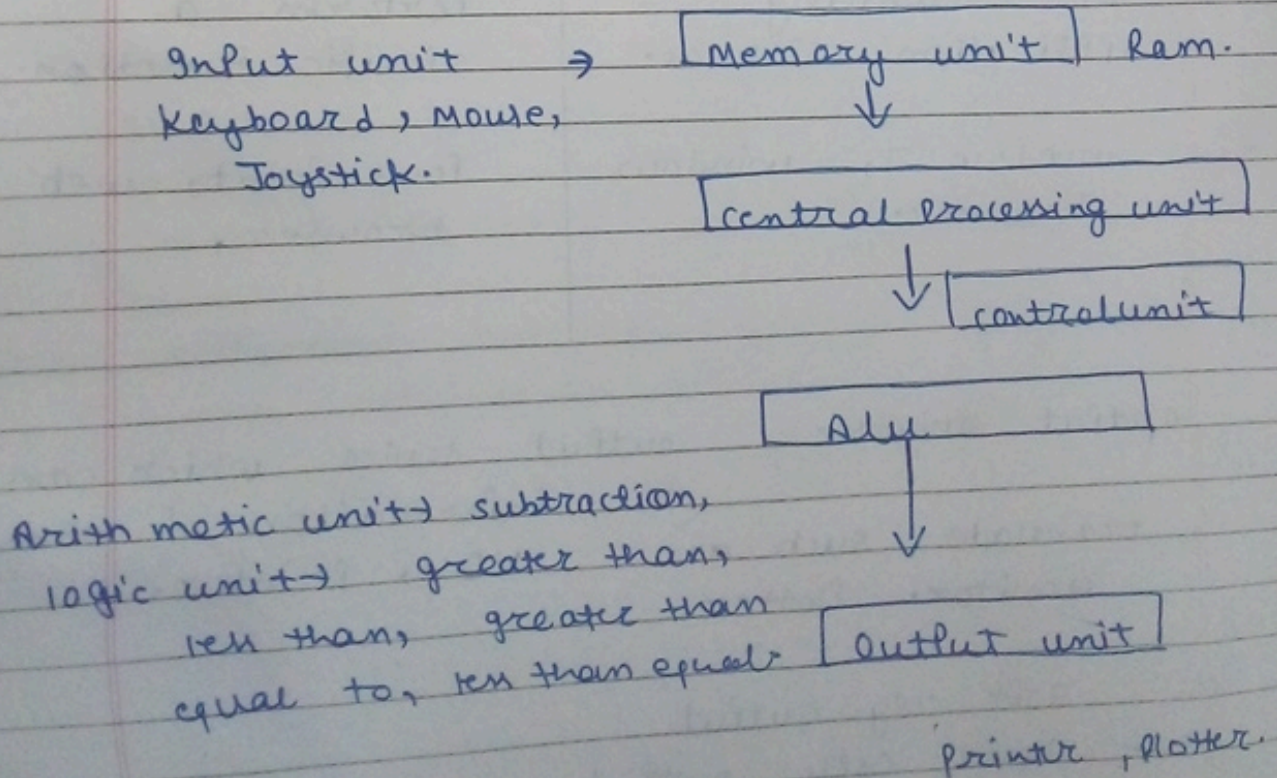 Input unit → Memory unit Ram.
Keyboard, Mouse,
Joystick.
central processing unit
control unit
Alu
Arith metic unit → subtraction,
logic unit → greater than,
less than, greater than
equal to, less than equal.
Output unit
Printer, Plotter.